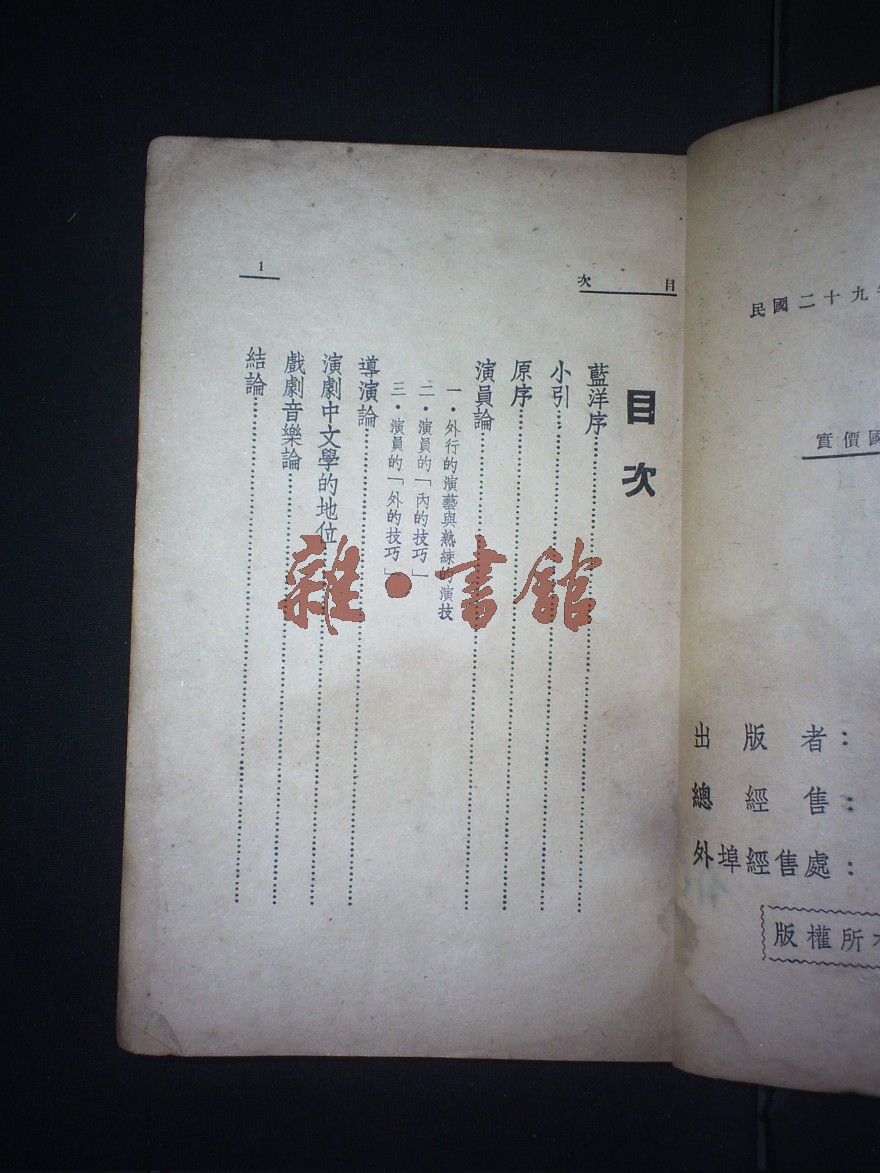 民國二十九
實價國
出版者：
總經售：
外埠經售處：
版權所
目次
目次
藍洋序
小引
原序
演員論
一・外行的演藝與熟練的演技
二・演員的「內的技巧」
三・演員的「外的技巧」
導演論
演劇中文學的地位
戲劇音樂論
結論
1
雜・書館